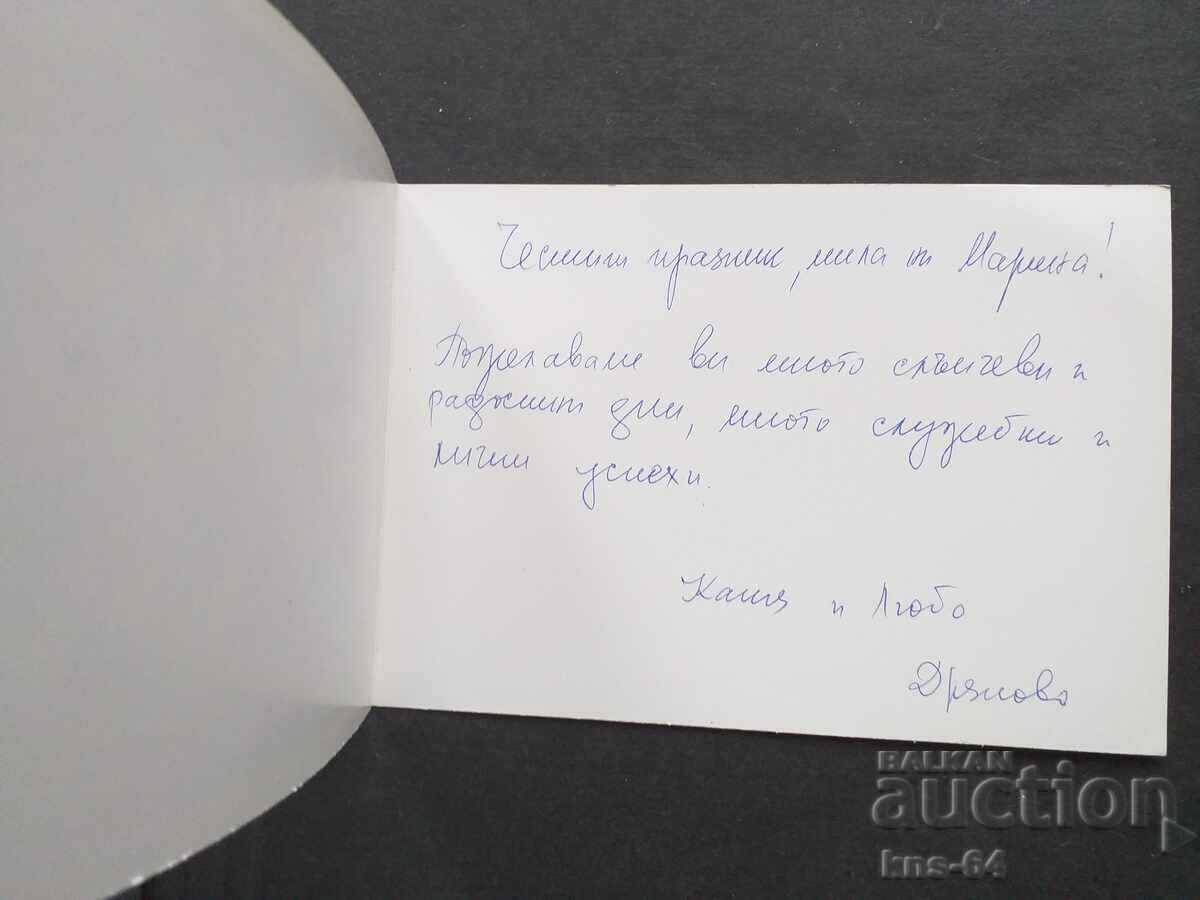 Честит празник, мила т. Марийка!
Пожелаваме ви много слънчеви и
радостни дни, много служебни и
лични успехи.
Катя и Любо
Дряново
BALKAN
auction
kns-64